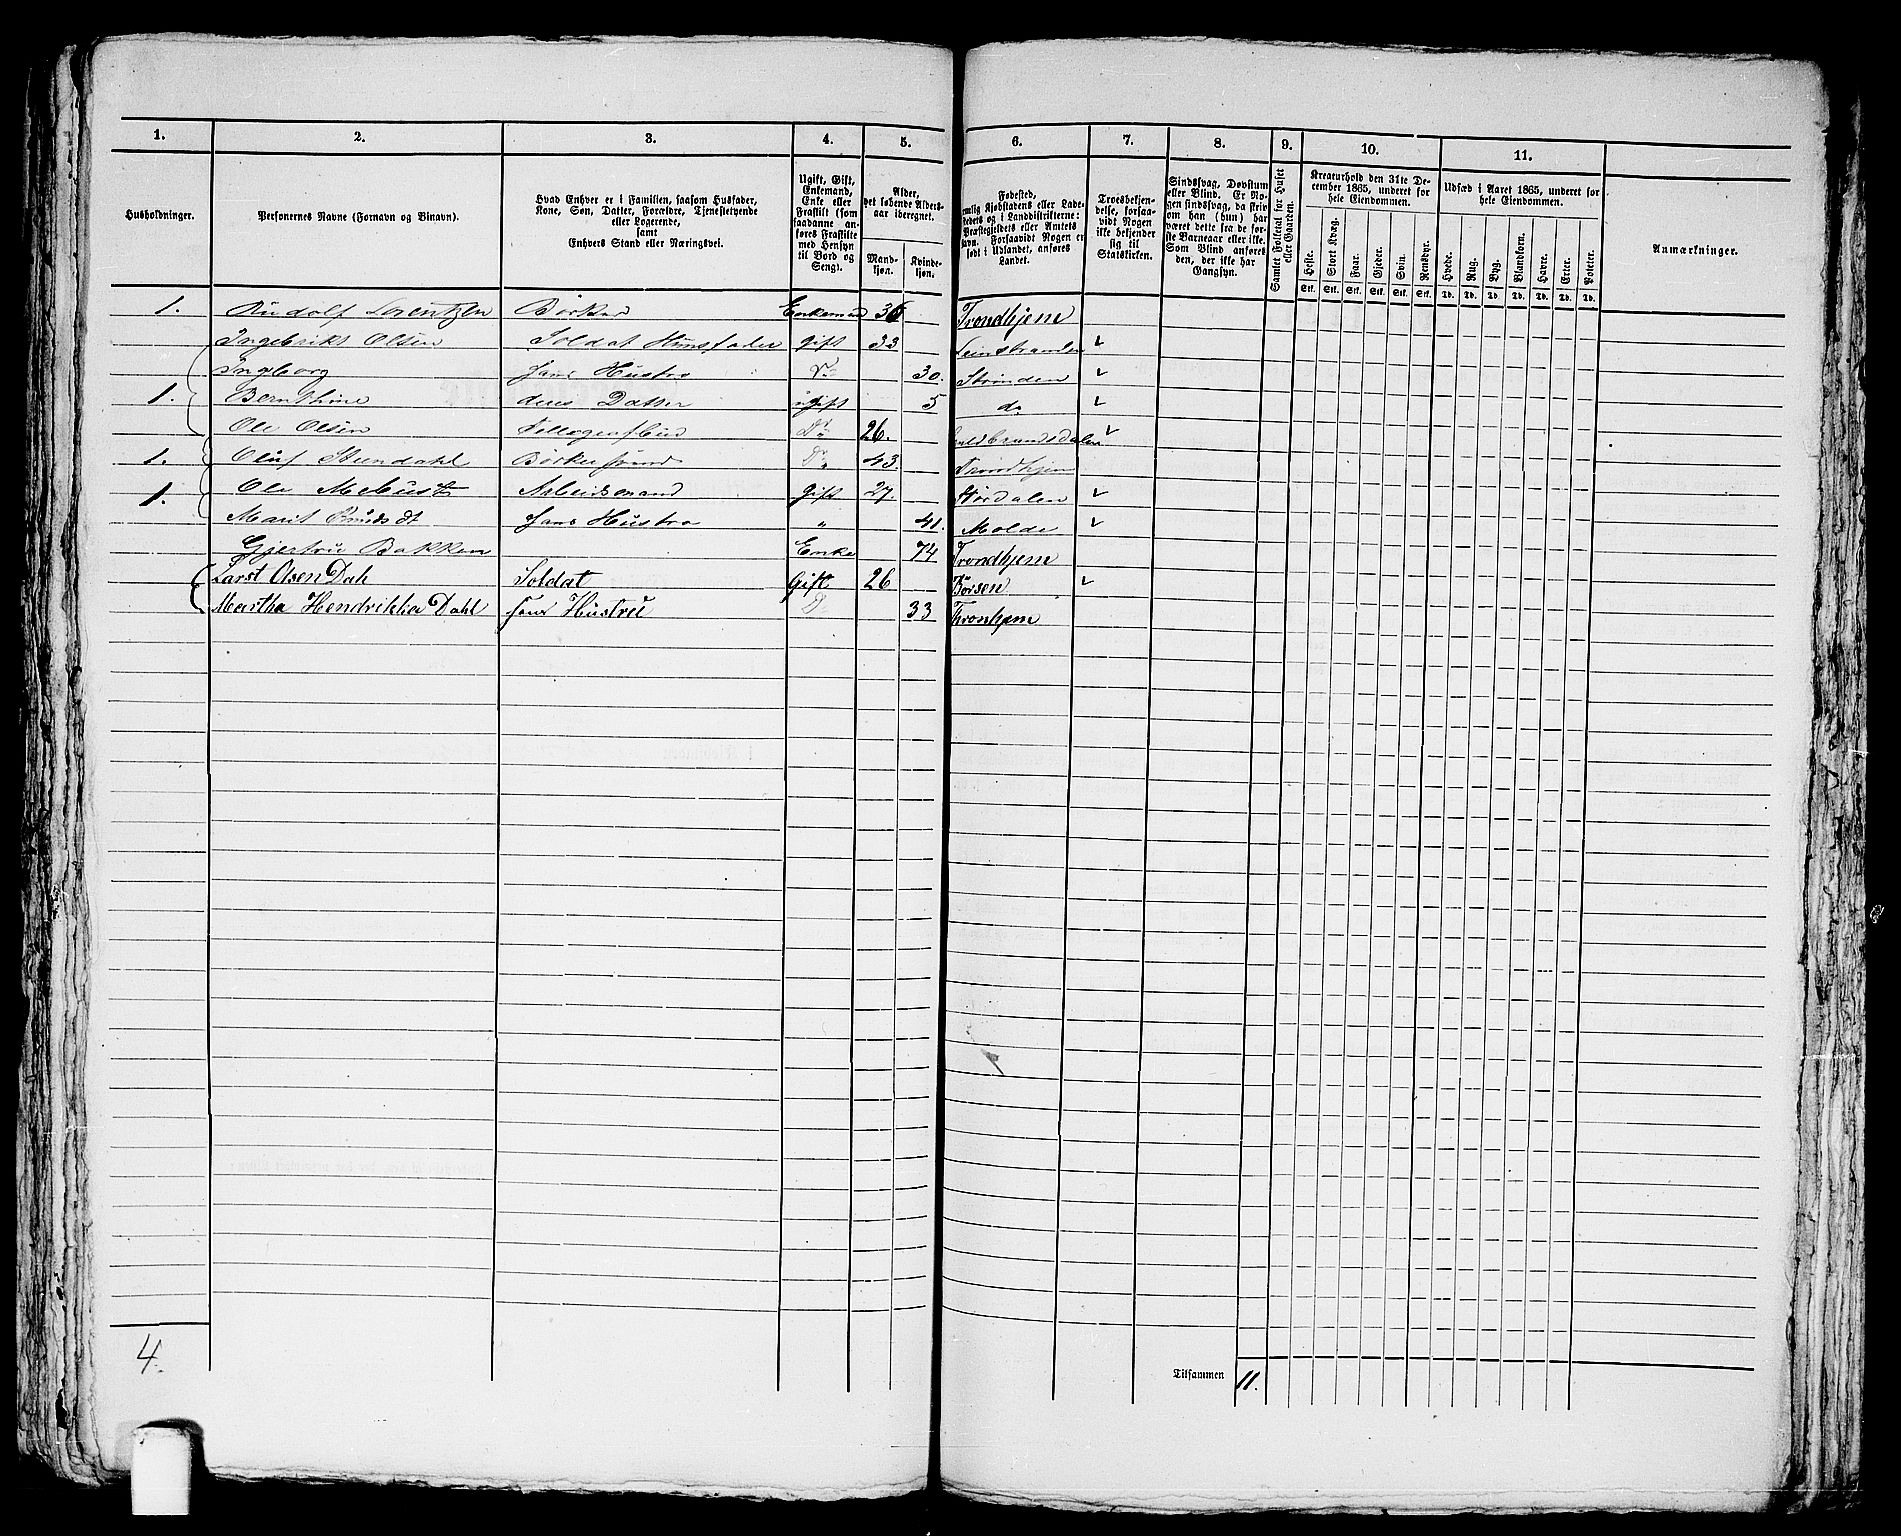 1. 2. 3. 4. 5. 6. 7. 8. 9. 10. 11.
Husholdninger.
Personernes Navne (Fornavn og Binavn).
Hvad Enhver er i Familien, saasom Husfader,
Kone, Søn, Datter, Forældre, Tjenestetyende
eller Logerende,
samt
Enhvers Stand eller Næringsvei.
Ugift, Gift,
Enkemand,
Enke eller
Fraskilt (som
saadanne an-
føres Fraskilte
med Hensyn
til Bord og
Seng).
Alder,
det løbende Alders-
aar iberegnet.
Mand-
kjøn.
Kvinde-
kjøn.
Fødested,
nemlig Kjøbstadens eller Lade-
stedets og i Landdistrikterne:
Præstegjeldets eller Amtets
Navn. Forsaavidt Nogen er
født i Udlandet, anføres
Landet.
Troesbekjen-
delse, forsaa-
vidt Nogen
ikke bekjender
sig til
Statskirken.
Sindssvag, Døvstum
eller Blind. Er No-
gen sindssvag, da skriv
om han (hun) har
været dette fra de før-
ste Barneaar eller ikke.
Som Blind anføres
den, der ikke har
Gangsyn.
Samlet Folketal for Huset
eller Gaarden.
Kreaturhold den 31te De-
cember 1865, underet for
hele Eiendommen.
Heste. Stort Kvæg. Faar. Gjeder. Svin. Rensdyr.
Stk. Stk. Stk. Stk. Stk. Stk.
Udsæd i Aaret 1865, underet for
hele Eiendommen.
Hvede. Rug. Byg. Blandkorn. Havre. Erter. Poteter.
Td. Td. Td. Td. Td. Td. Td.
Anmærkninger.
1. Rudolf Lorentzen Børker Enkemand 36 Trondhjem
Ingebrikt Olsen Soldat Huusfader gift 33 Leinstranden
Ingborg hans Hustro Do 30. Strinden
1. Bernthine deres Datter ugift 5 do
Ole Olsen Tellegrafbud Do 26. Guldbrandsdalen
1. Oluf Stendahl Børkersvend Do 43. Trondhjem
1. Ole Mebust Arbeidsmand gift 27. Størdalen
Marit hans Hustro " 41. Molde
Gjertru Bakken Enke 74 Trondhjem
Larst Olsen Dah Soldat Gift 26 Børsen
Martha Hendrikka Dahl hans Hustru D 33 Thronhjem
4.
Tilsammen 11.